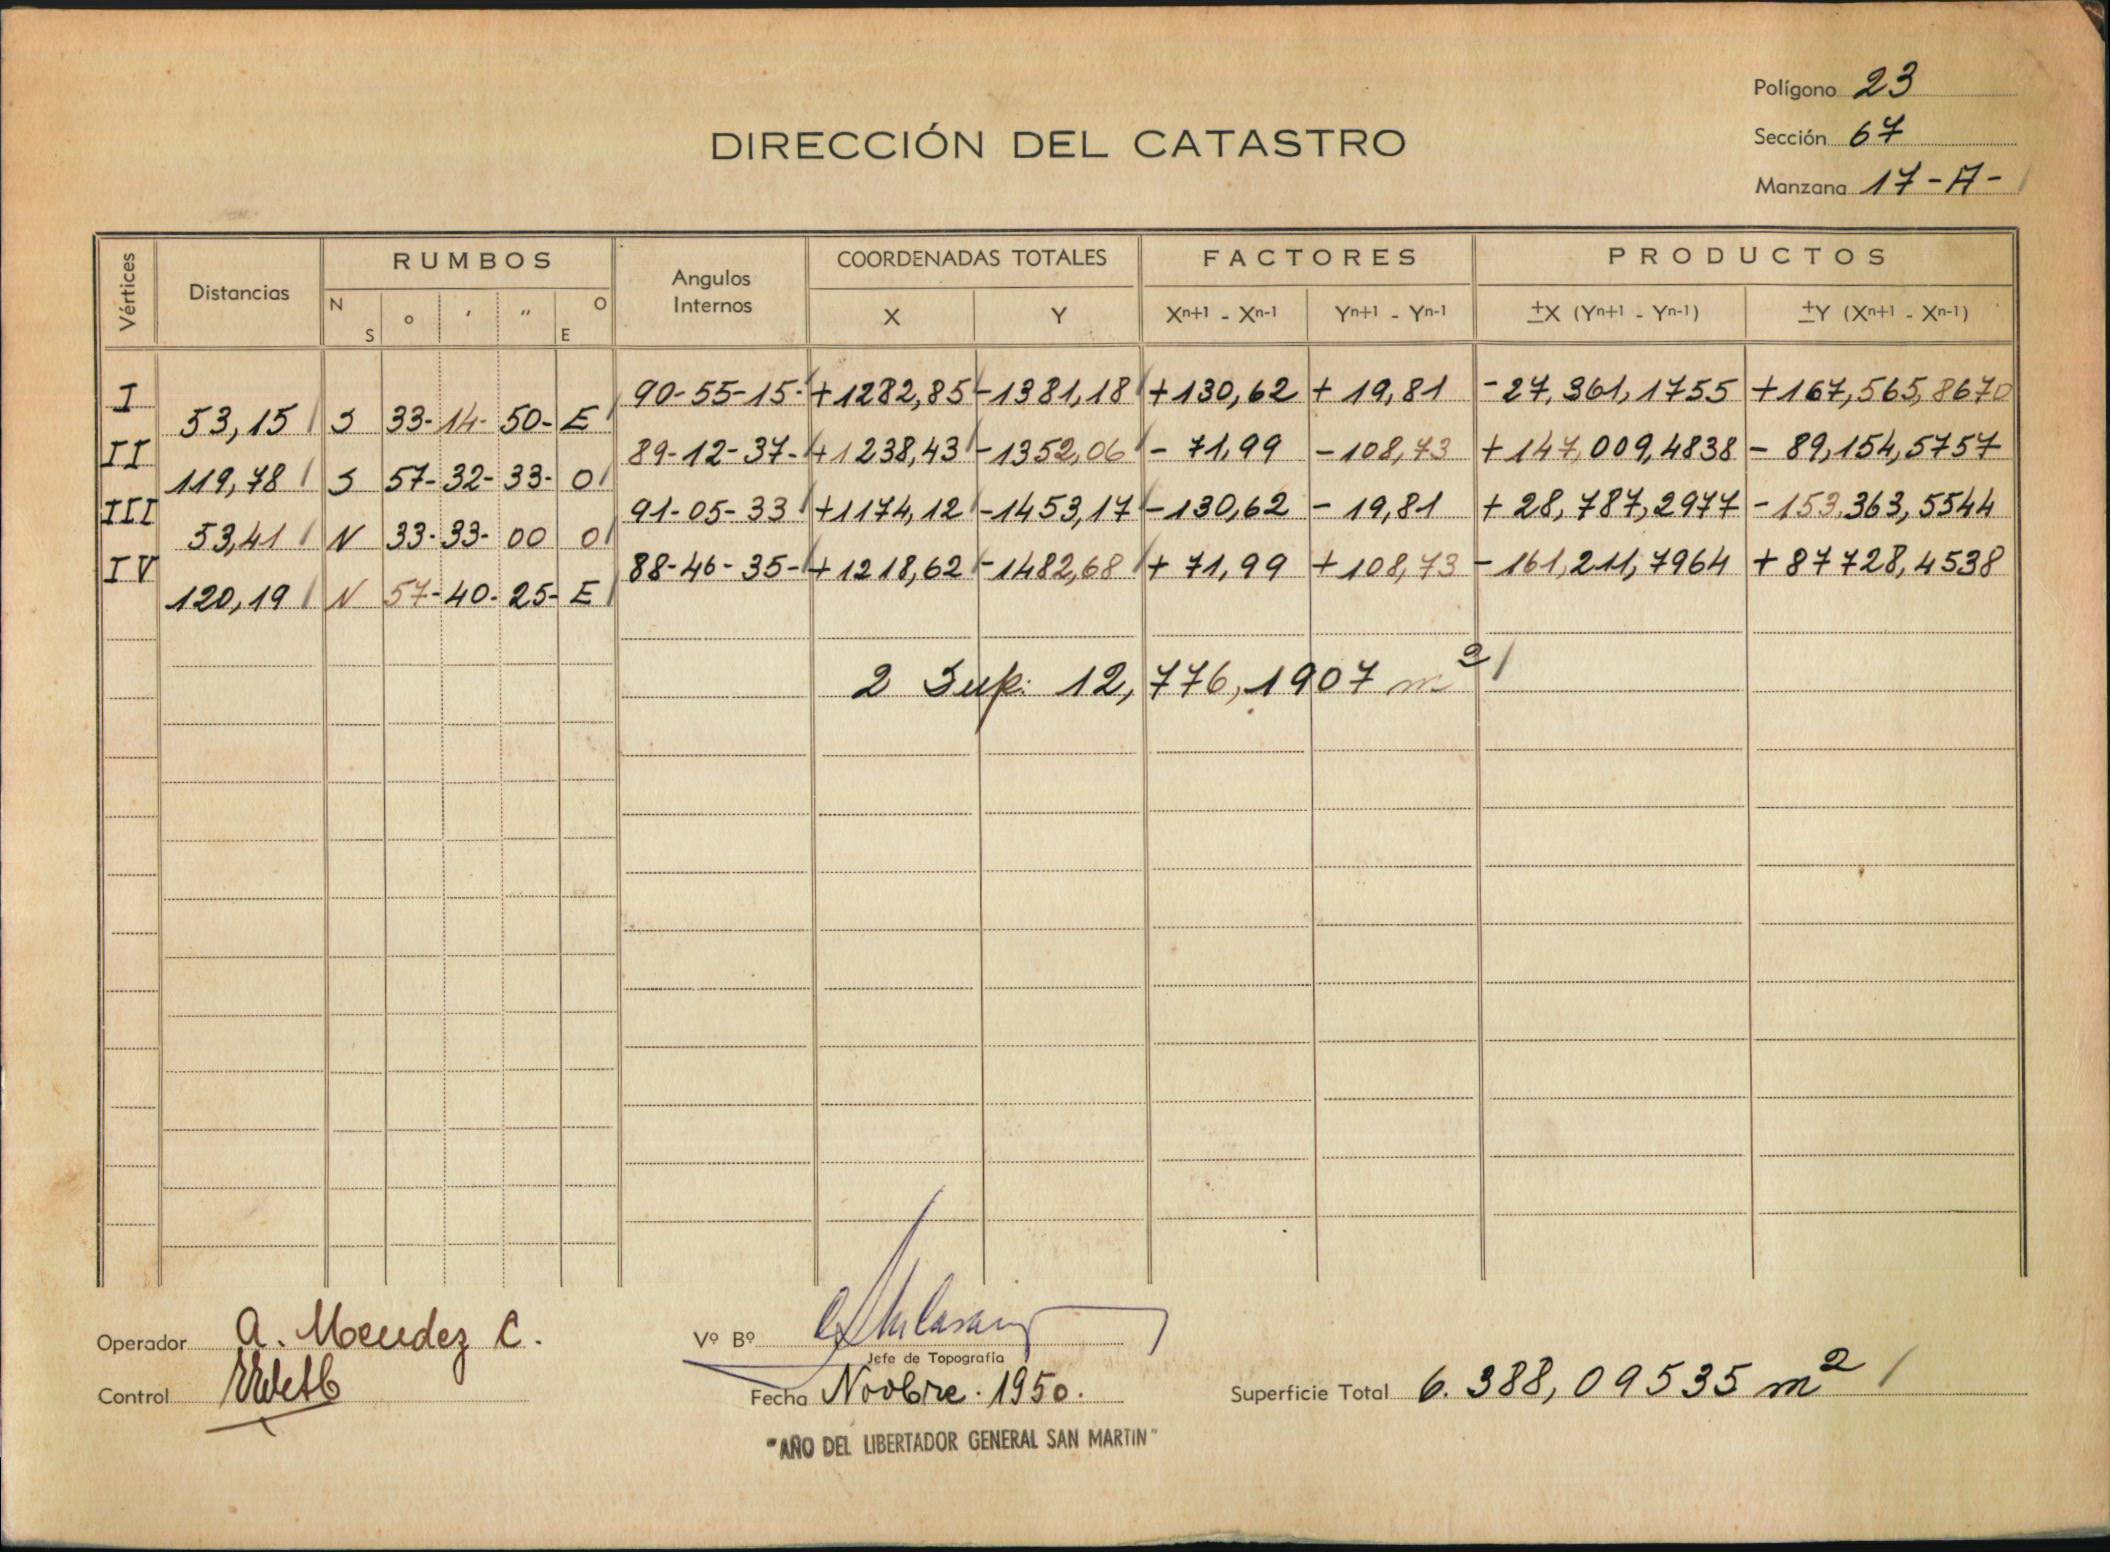 Polígono 23
DIRECCIÓN DEL CATASTRO
Sección 67
Manzana 17-A-
Vértices Distancias RUMBOS N S o ′ ″ O E Angulos Internos COORDENADAS TOTALES X Y FACTORES Xn+1 - Xn-1 Yn+1 - Yn-1 PRODUCTOS ±X (Yn+1 - Yn-1) ±Y (Xn+1 - Xn-1)
I 90-55-15- +1282,85 -1381,18 +130,62 + 19,81 -27,361,1755 +167,565,8670
53,15 S 33-14-50- E
II 89-12-37- +1238,43 -1352,06 - 71,99 -108,73 +147,009,4838 - 89,154,5757
119,78 S 57-32-33- O
III 91-05-33 +1174,12 -1453,17 -130,62 - 19,81 + 28,787,2977 -153,363,5544
53,41 N 33-33-00 O
IV 88-46-35- +1218,62 -1482,68 + 71,99 +108,73 -161,211,7964 +87728,4538
120,19 N 57-40-25- E
2 Sup. 12,776,1907 m²
Operador A. Mendez C.
Vº Bº
Jefe de Topografía
Control
Fecha Novbre. 1950.
Superficie Total 6.388,09535 m²
"AÑO DEL LIBERTADOR GENERAL SAN MARTIN"